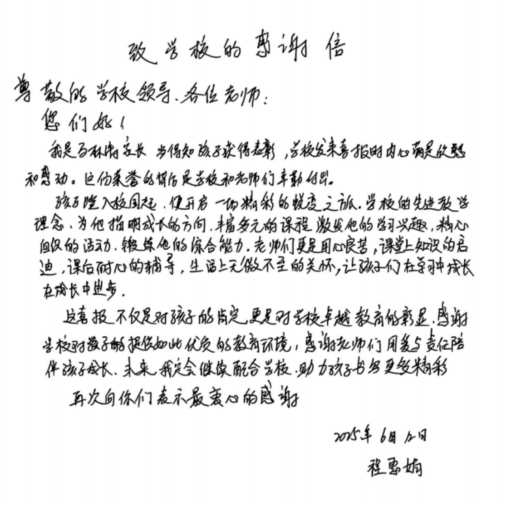 致学校的感谢信
尊敬的学校领导、各位老师:
您们好!
我是百林涛家长 当得知孩子获得表彰,学校发来喜报时内心满是欣慰
和感动。这份荣誉的背后是学校和老师们辛勤付出。
孩子踏入校园起,便开启一份精彩的蜕变之旅。学校的先进教学
理念,为他指明成长的方向,丰富多元的课程激发他的学习兴趣,精心
组织的活动,锻炼他的综合能力。老师们更是用心良苦,课堂上知识的启
迪,课后耐心的辅导,生活上无微不至的关怀,让孩子们在学习中成长
在成长中进步。
这喜报不仅是对孩子的肯定,更是对学校卓越教育的彰显。感谢
学校对孩子能提供如此优质的教育环境,感谢老师们用爱与责任陪
伴孩子成长、未来,我定会继续配合学校,助力孩子书写更多精彩
再次向你们表示最衷心的感谢
2025年6月12日